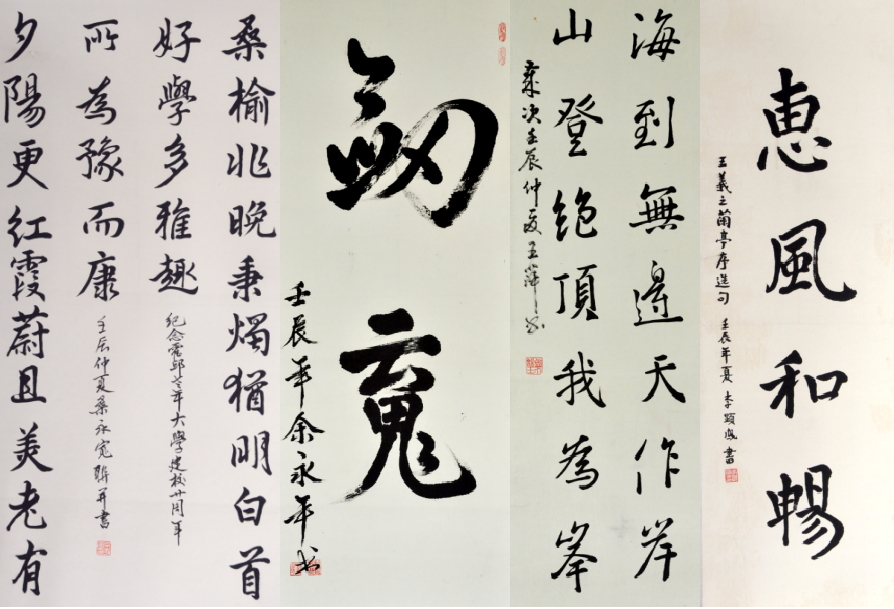 惠風和暢
王羲之蘭亭序選句 壬辰年夏 李穎鳳書
海到無邊天作岸
山登絕頂我為峯
次壬辰仲夏王萍书
劍魂
壬辰年余永年书
桑榆非晚秉燭猶明白首
好學多雅趣
紀念霍邱老年大學建校廿周年
夕陽更紅霞蔚且美老有
所為豫而康
壬辰仲夏桑永寬聯并書